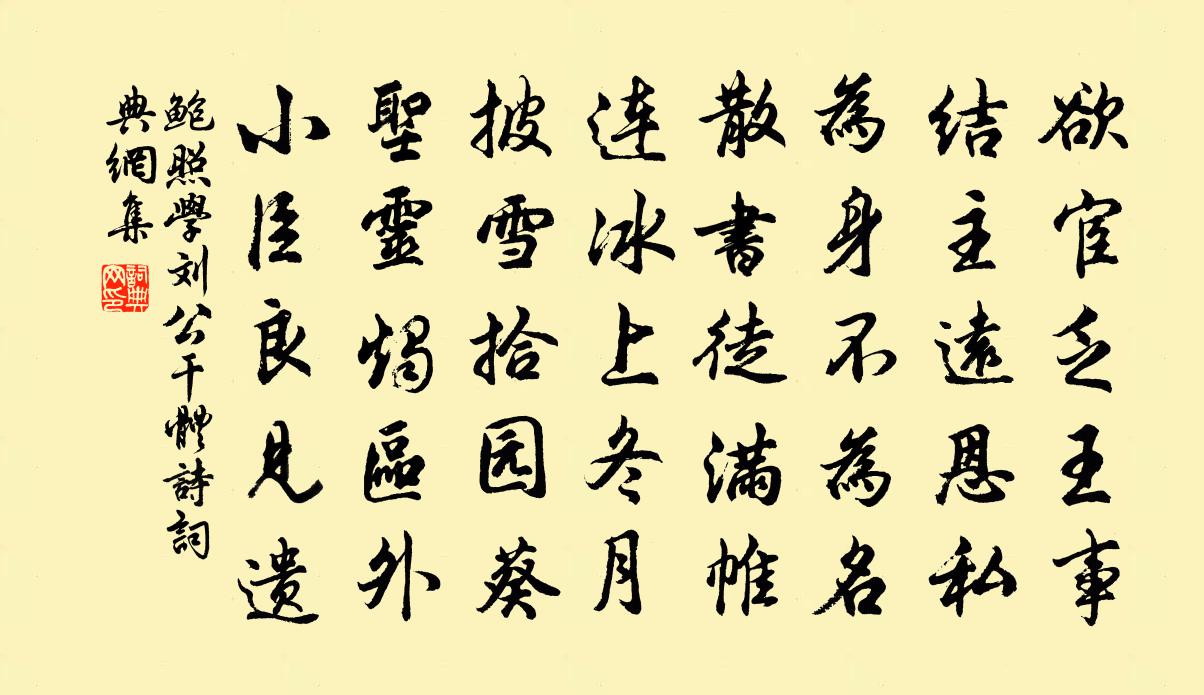 欲宦乏王事
结主遠恩私
為身不為名
散書徒滿帷
連冰上冬月
披雪拾园葵
聖靈燭區外
小臣良見遗
鮑照學刘公干體詩詞
典網集
詞典网印